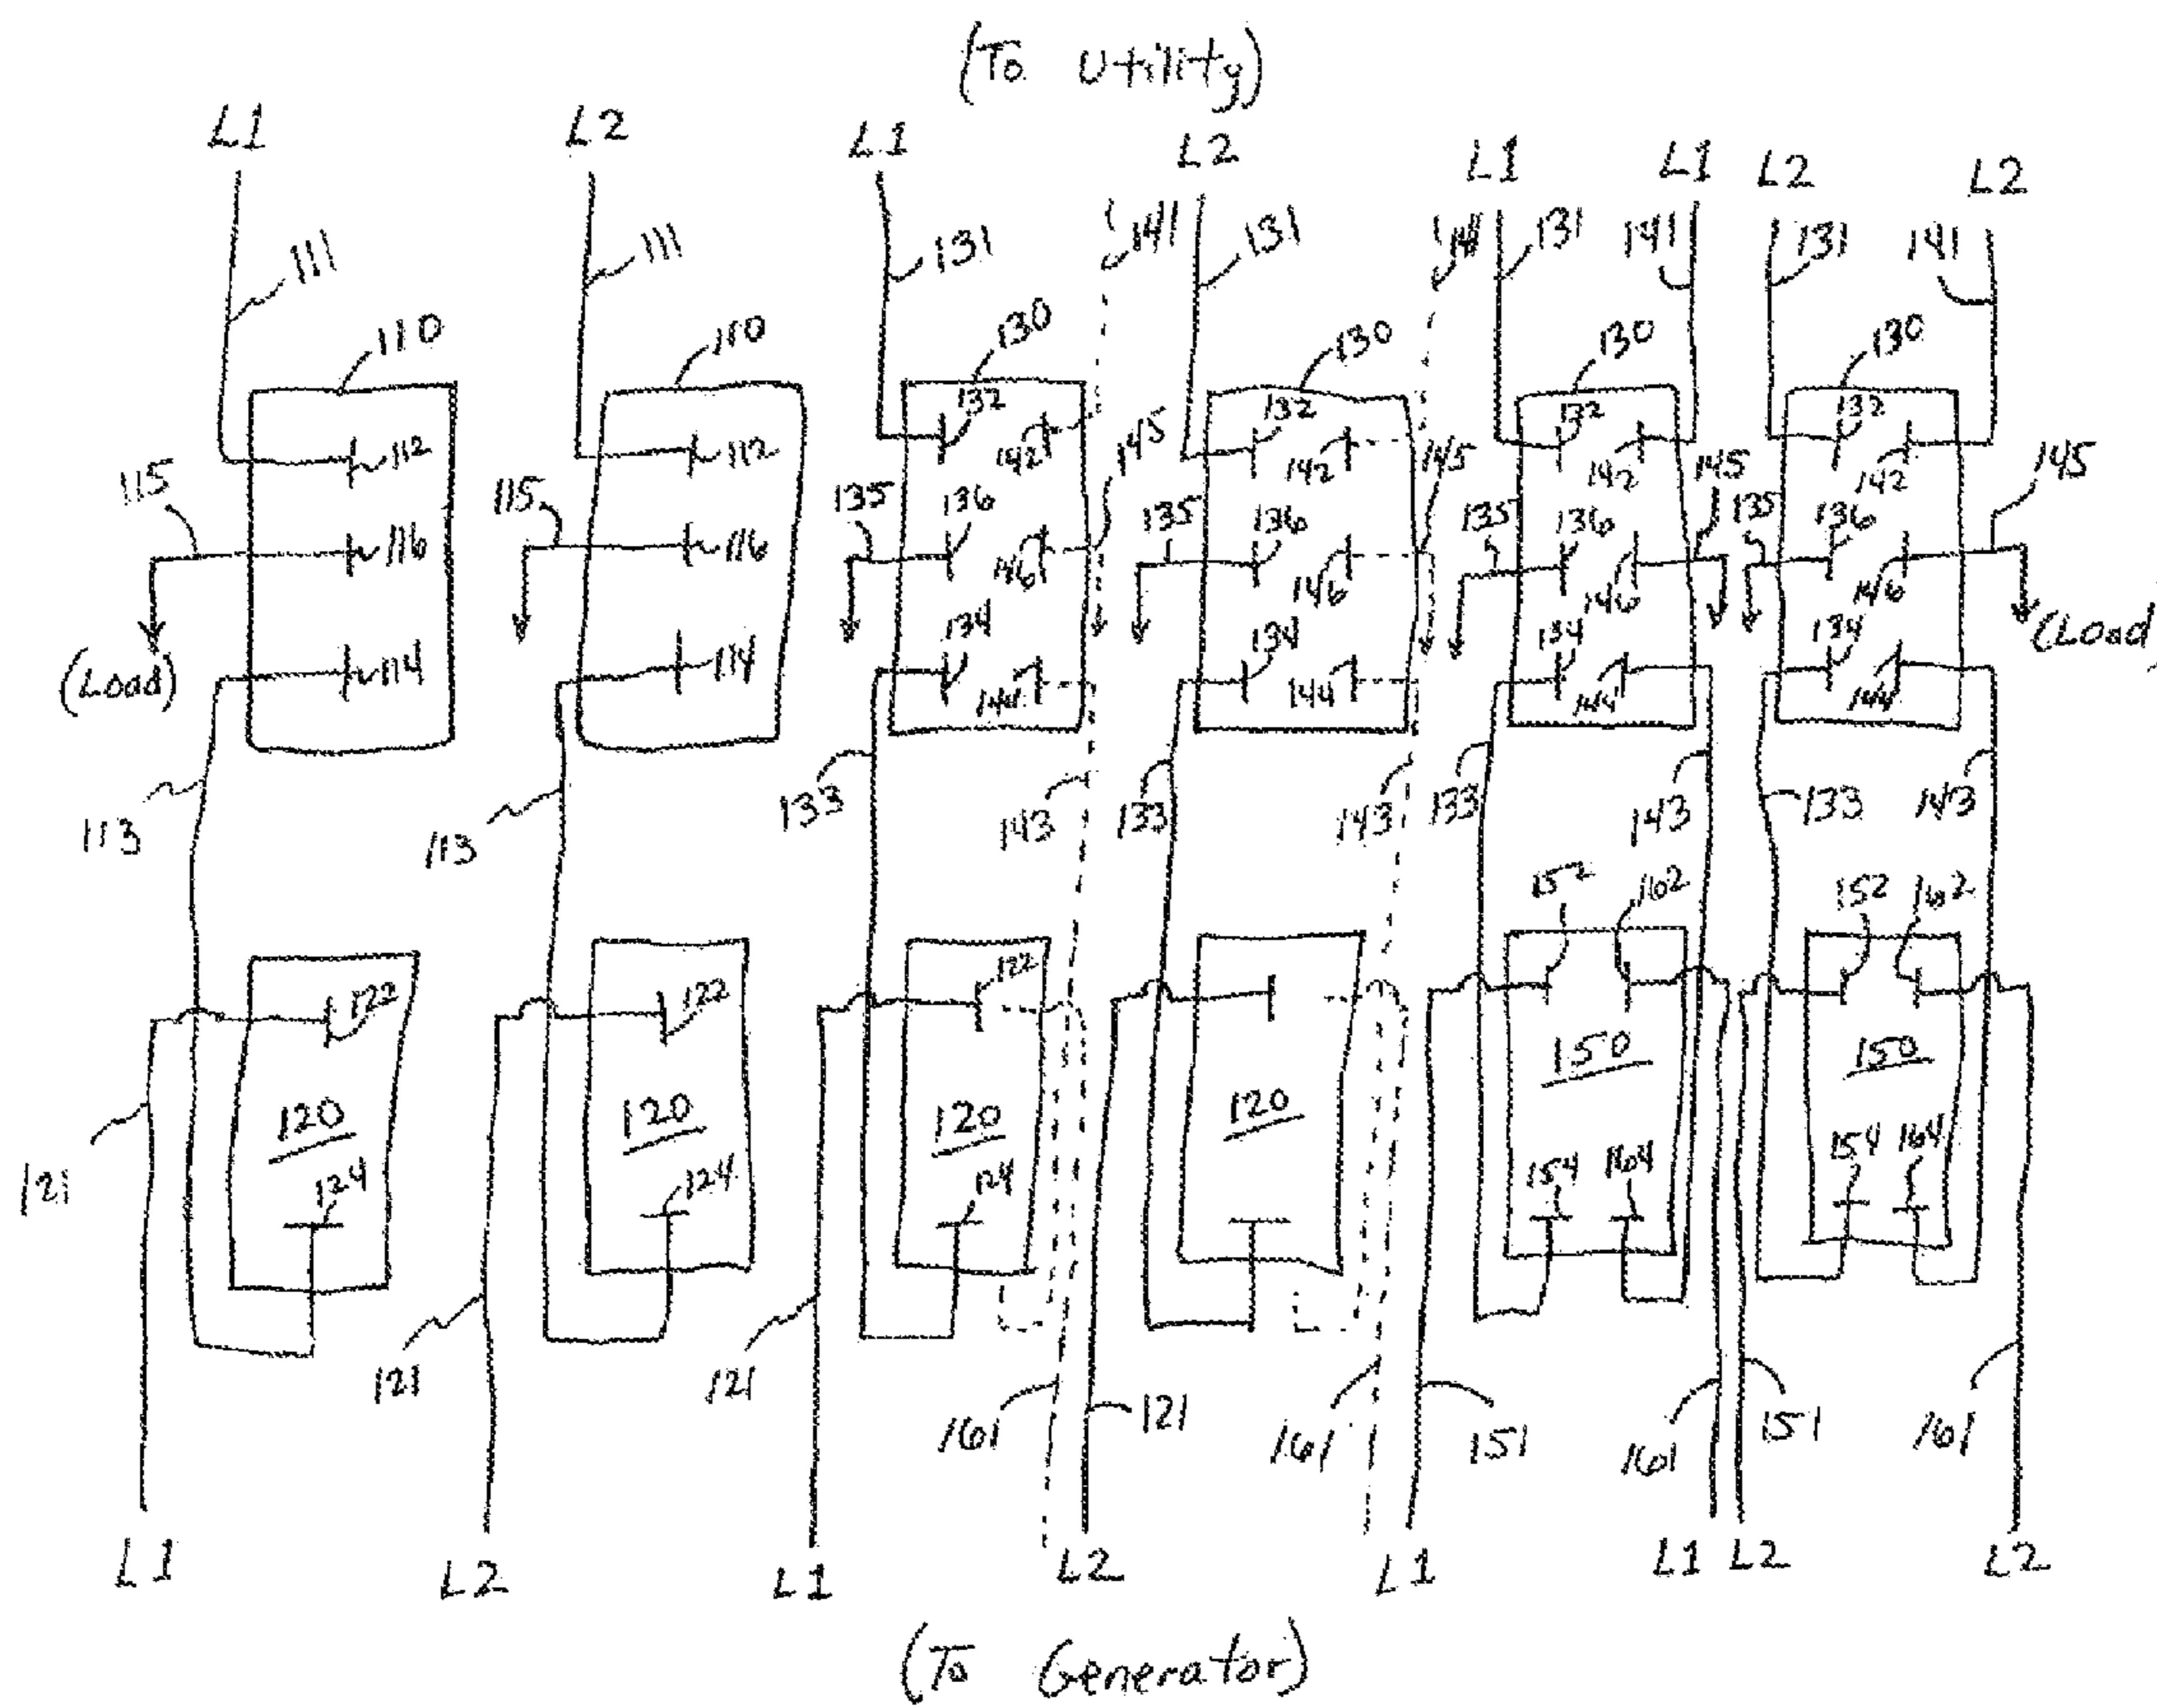 (To Utility)
L1 L2 L1 L2 L1 L1 L2 L2
111 111 131 141 131 141 131 141 131 141
110 110 130 130 130 130
112 112 132 142 132 142 132 142 132 142
115 115 135 145 135 145 135 145 135 145
116 116 136 146 136 146 136 146 136 146
(Load) (Load)
114 114 134 144 134 144 134 144 134 144
113 113 133 143 133 143 133 143 133 143
152 162 152 162
122 122 122
120 120 120 120 150 150
124 124 124 154 164 154 164
121 121 121 161 121 161 151 161 151 161
L1 L2 L1 L2 L1 L1 L2 L2
(To Generator)